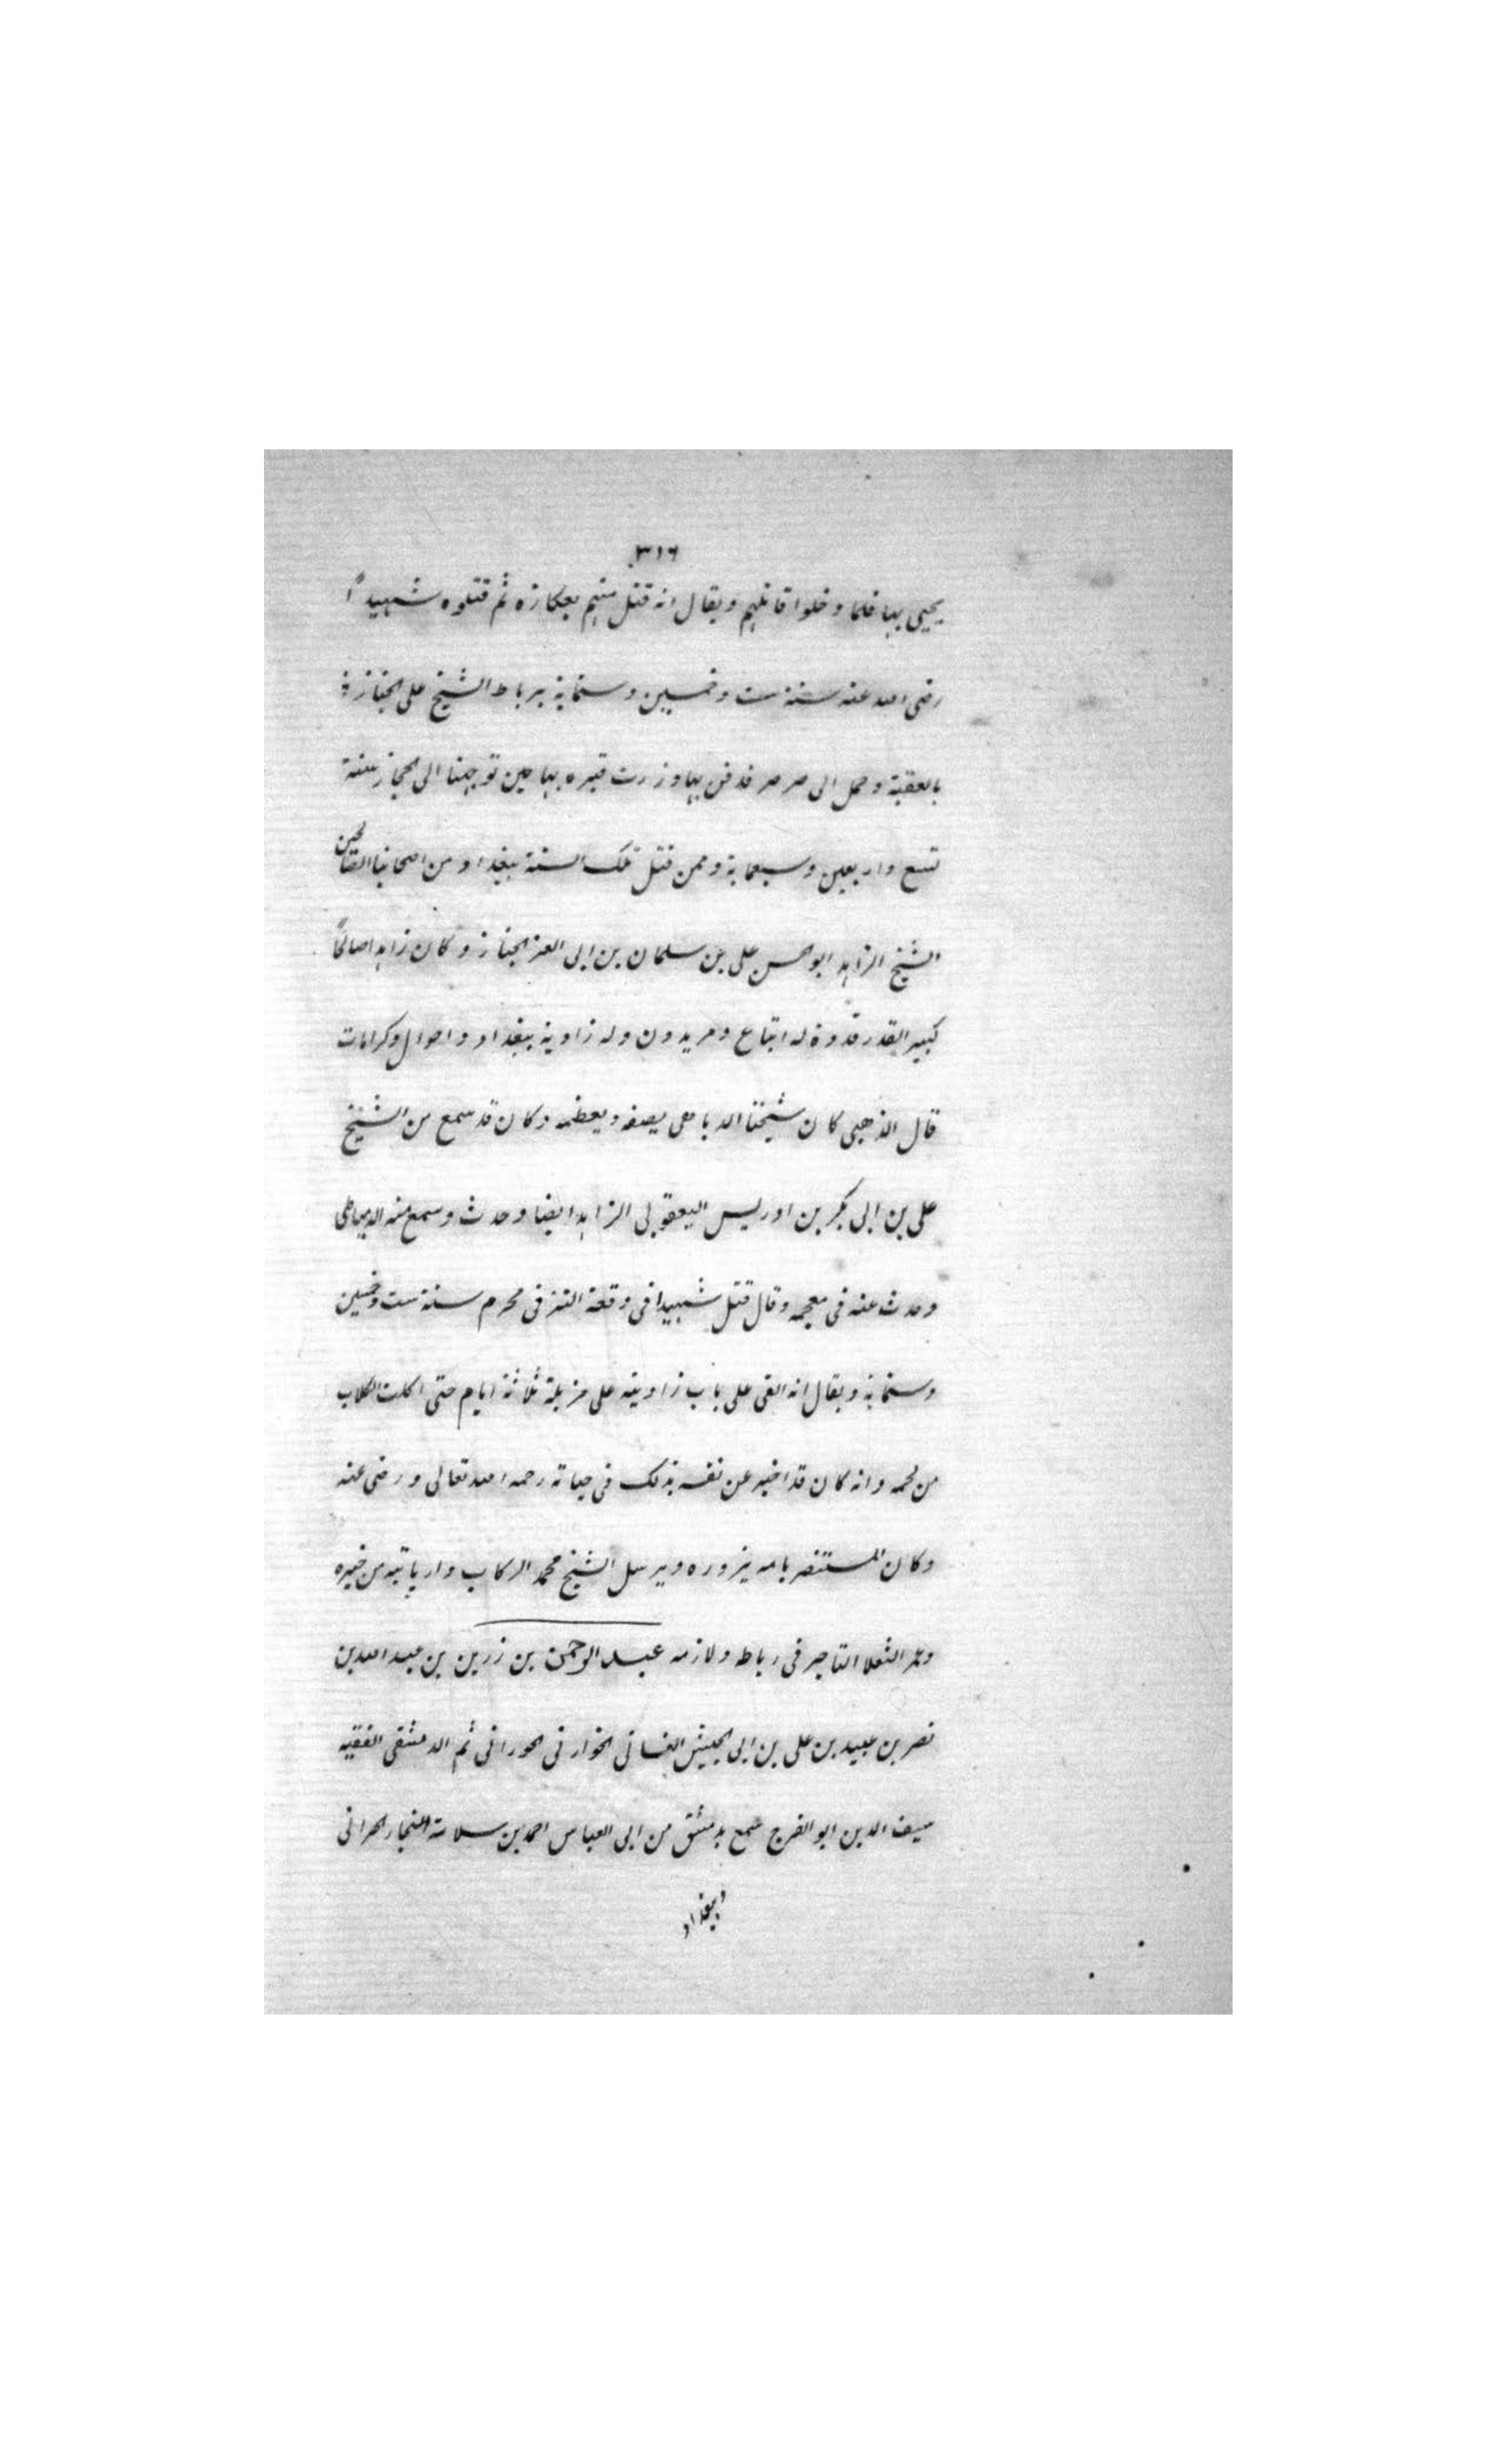 ٣١٦
يحيى بها فلما دخلوا قاتلهم ويقال انه قتل منهم بعكازه ثم قتلوه شهيداً
رضى الله عنه سنة ست وخمسين وستماية برباط الشيخ على الخباز
بالعقبة وحمل الى صرصر فدفن بها وزرت قبره بها حين توجهنا الى الحجاز سنة
تسع واربعين وسبعماية وممن قتل تلك السنة ببغداد من اصحابنا الصالحين
الشيخ الزاهد ابو الحسن على بن سلمان بن ابى العز الخباز وكان زاهدا صالحاً
كبير القدر قدوة له اتباع ومريدون وله زاوية ببغداد واحوال وكرامات
قال الذهبى كان شيخنا الدباهى يصفه ويعظمه وكان قد سمع من الشيخ
على بن ابى بكر بن ادريس اليعقوبى الزاهد ايضا وحدث وسمع منه الدمياطى
وحدث عنه فى معجمه وقال قتل شهيدا فى وقعة التتر فى محرم سنة ست وخمسين
وستماية ويقال انه القى على باب زاويته على مزبلة ثلاثة ايام حتى اكلت الكلاب
من لحمه وانه كان قد اخبر عن نفسه بذلك فى حياته رحمه الله تعالى ورضى عنه
وكان المستنصر بالله يزوره ويرسل الشيخ محمد الركاب دار ياتيه من خبزه
وعمر التاجر فى رباط ولازمه عبد الرحمن بن رزين بن عبد الله بن
نصر بن عبيد بن على بن ابى الجيش الغسانى الخوارنى الحورانى ثم الدمشقى الفقيه
سيف الدين ابو الفرج سمع بدمشق من ابى العباس احمد بن سلامة النجار الحرانى
وببغداد